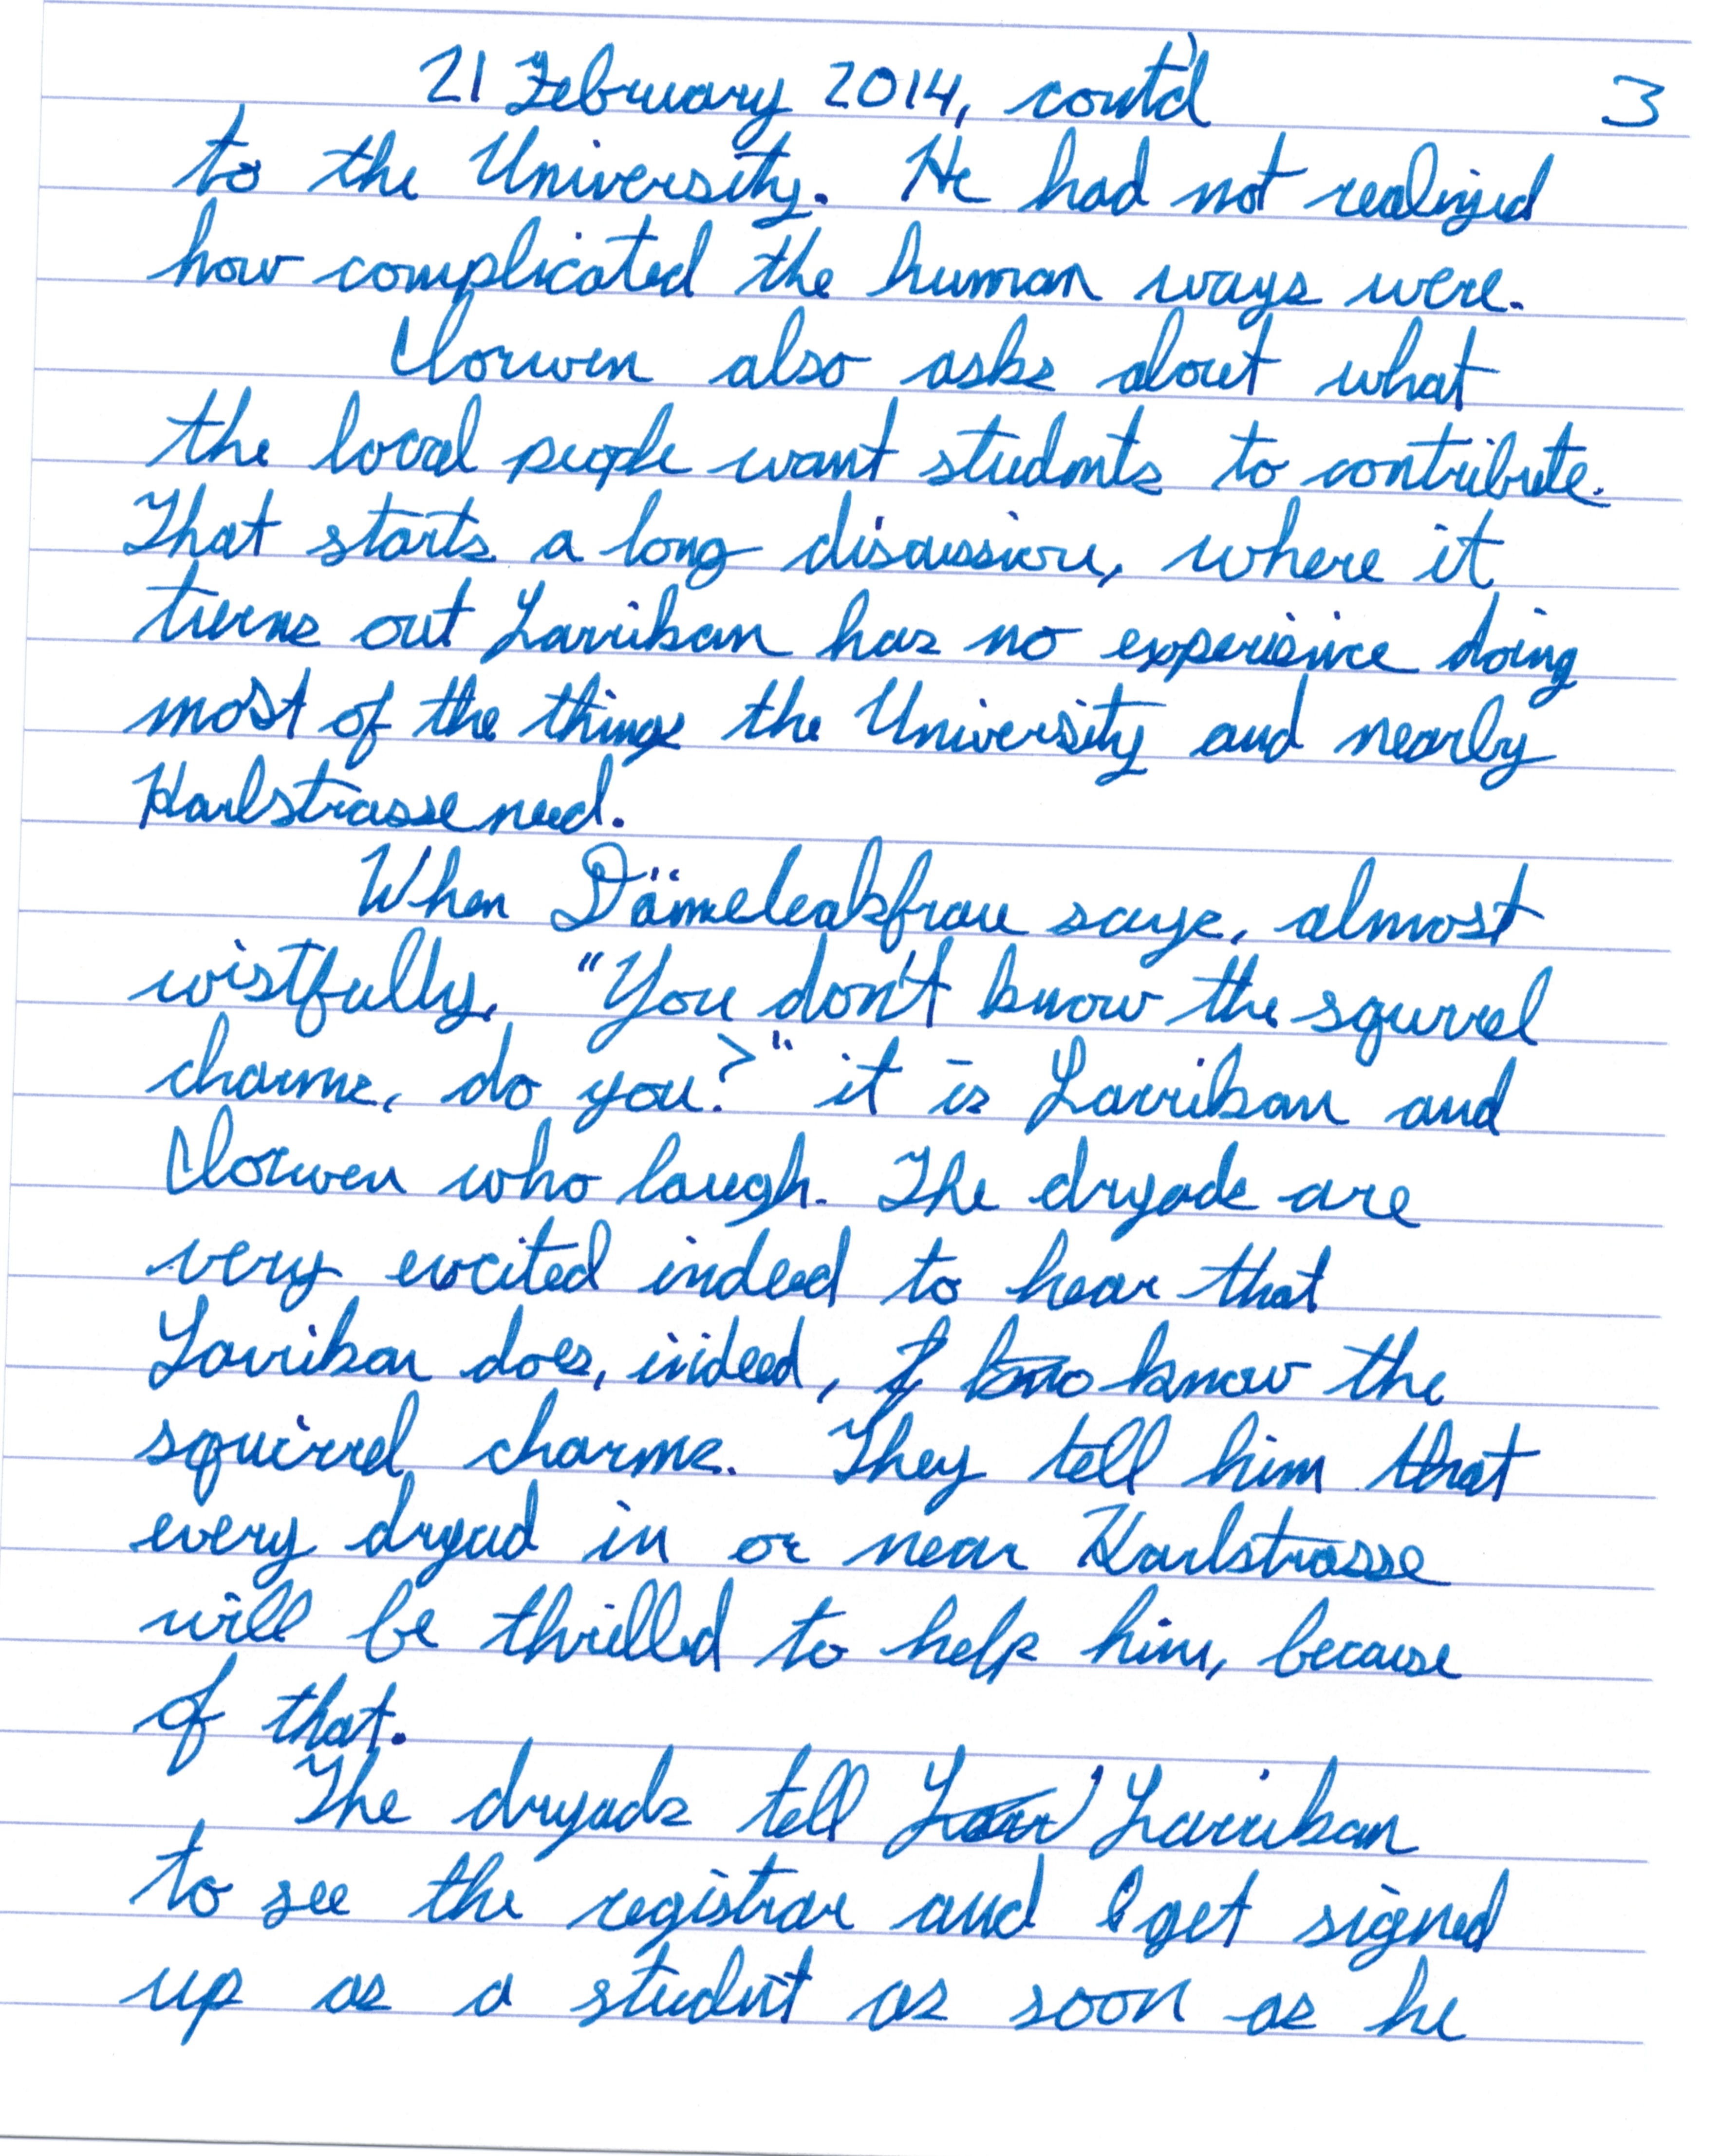 21 February 2014, cont'd 3
to the University. He had not realized
how complicated the human ways were.
Clorwen also asks about what
the local people want students to contribute.
That starts a long discussion, where it
turns out Larriban has no experience doing
most of the things the University and nearby
Karlstrasse need.
When Dämeleakfrau says, almost
wistfully, "You don't know the squrrel
charms, do you?" it is Larriban and
Clorwen who laugh. The dryads are
very excited indeed to hear that
Larriban does, indeed, know the
squirrel charms. They tell him that
every dryad in or near Karlstrasse
will be thrilled to help him, because
of that.
The dryads tell Larr Larriban
to see the registrar and get signed
up as a student as soon as he